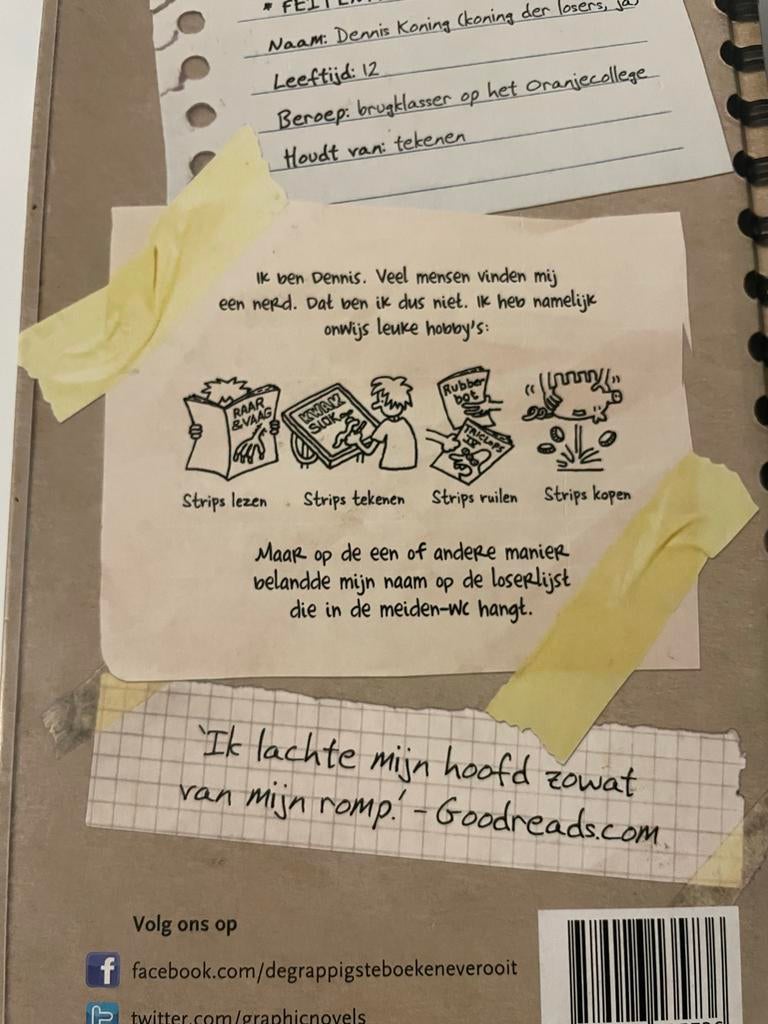 * FEITEN
Naam: Dennis Koning (koning der losers, ja)
Leeftijd: 12
Beroep: brugklasser op het Oranjecollege
Houdt van: tekenen
Ik ben Dennis. Veel mensen vinden mij
een nerd. Dat ben ik dus niet. Ik heb namelijk
onwijs leuke hobby's:
RAAR
&VAAG
KWAK
SLOK
Rubber
bot
TRICLOPS
IV
Strips lezen
Strips tekenen
Strips ruilen
Strips kopen
Maar op de een of andere manier
belandde mijn naam op de loserlijst
die in de meiden-wc hangt.
'Ik lachte mijn hoofd zowat
van mijn romp.' - Goodreads.com
Volg ons op
f facebook.com/degrappigsteboekeneverooit
t twitter.com/graphicnovels